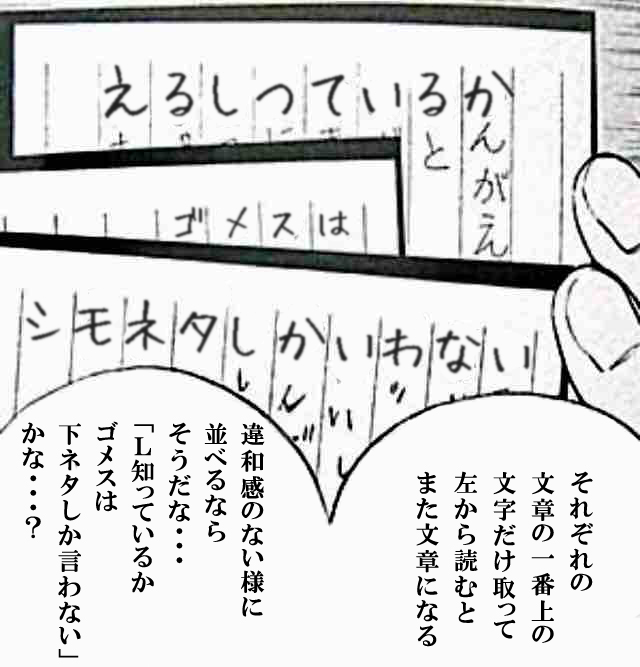 えるしつているか
んがえ
と
ゴメスは
シモネタしかいわない
それぞれの
文章の一番上の
文字だけ取って
左から読むと
また文章になる
違和感のない様に
並べるなら
そうだな・・・
「L知っているか
ゴメスは
下ネタしか言わない」
かな・・・?